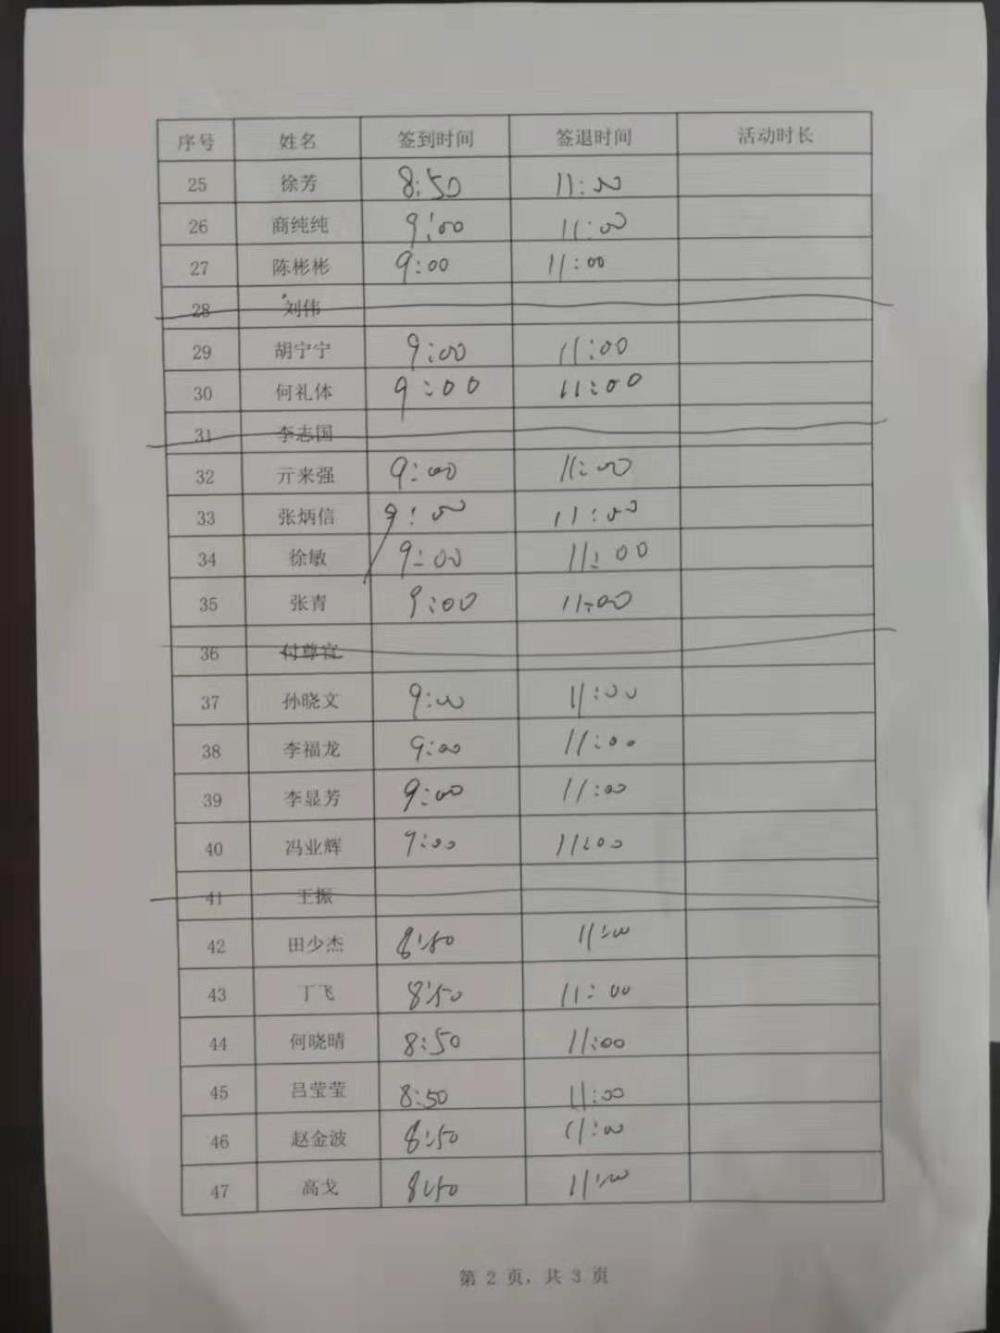 序号 姓名 签到时间 签退时间 活动时长
25 徐芳 8:50 11:00
26 商纯纯 9:00 11:00
27 陈彬彬 9:00 11:00
28 刘伟
29 胡宁宁 9:00 11:00
30 何礼体 9:00 11:00
31 李志国
32 亓来强 9:00 11:00
33 张炳信 9:00 11:00
34 徐敏 9:00 11:00
35 张青 9:00 11:00
36 付尊
37 孙晓文 9:00 11:00
38 李福龙 9:00 11:00
39 李显芳 9:00 11:00
40 冯业辉 9:00 11:00
41 王振
42 田少杰 8:50 11:00
43 丁飞 8:50 11:00
44 何晓晴 8:50 11:00
45 吕莹莹 8:50 11:00
46 赵金波 8:50 11:00
47 高戈 8:50 11:00
第 2 页, 共 3 页